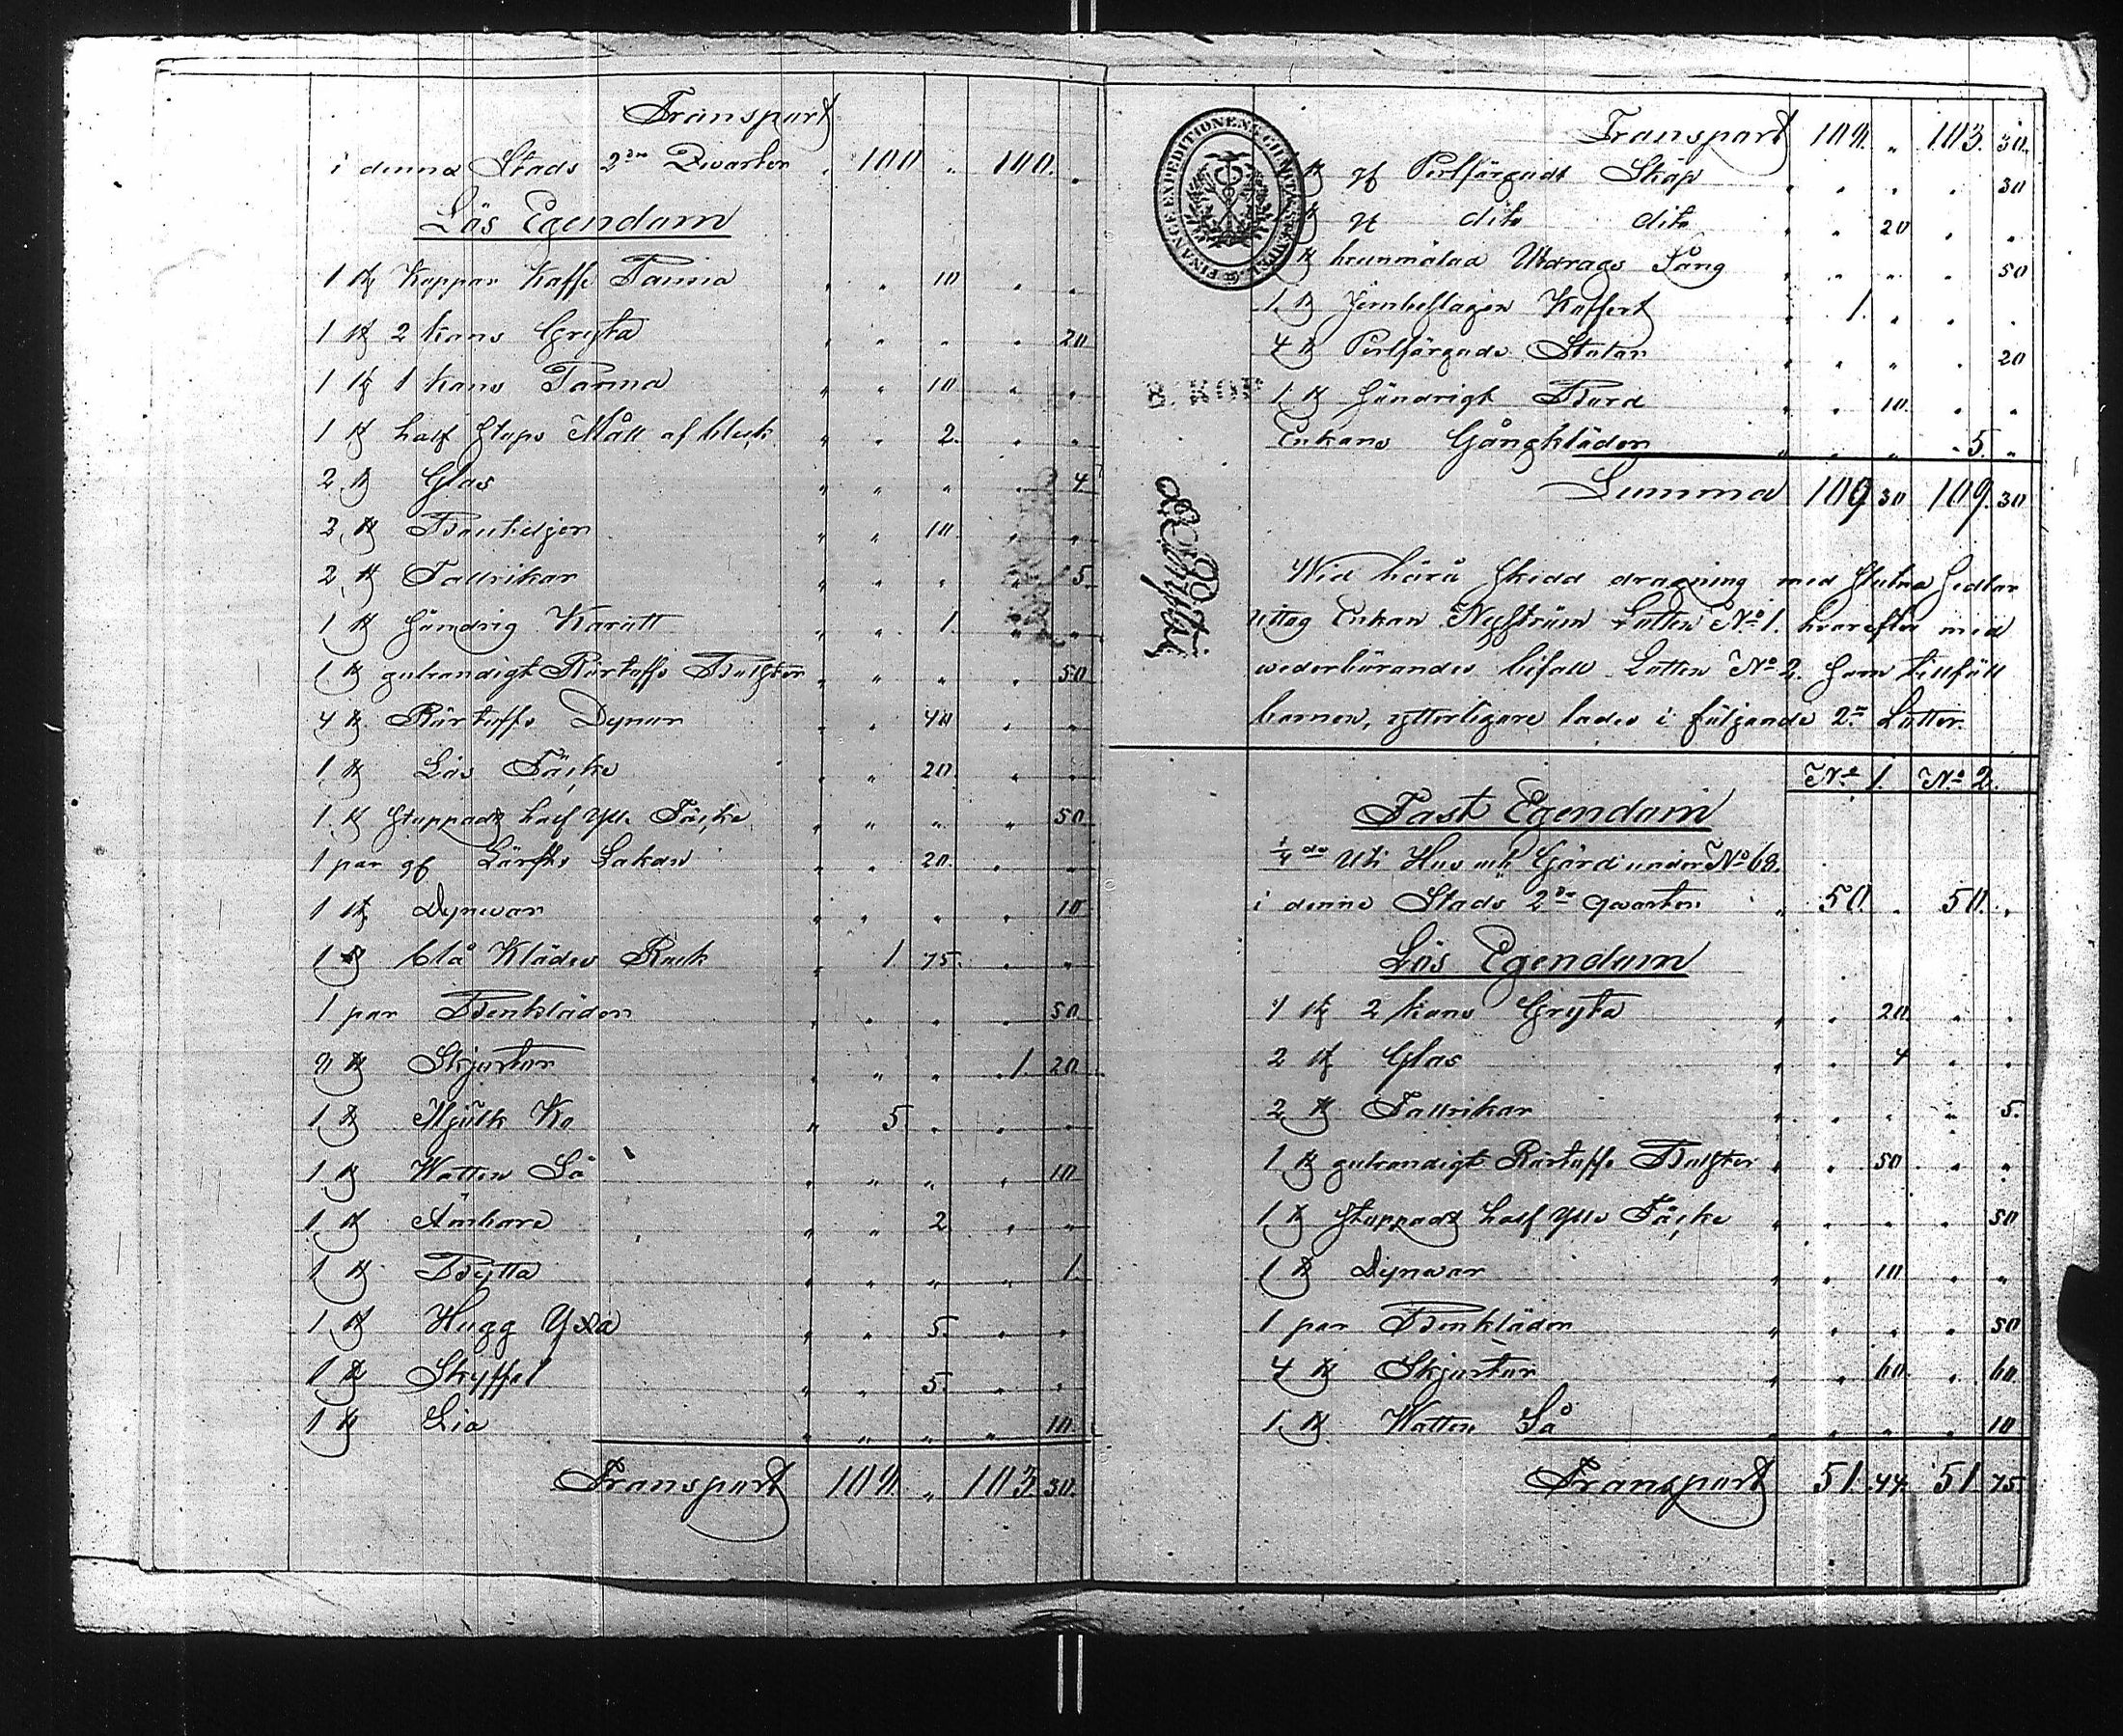 Transport
i denna Stads 2dra Qvarter " 100 " 100. "
Lös Egendom
1 st Koppar Kaffe Panna " " 10 " "
1 st 2 kans Gryta " " " " 20
1 st 1 kans Panna " " 10 " "
1 st half stops Mått af bleck " " 2. " "
2 st Glas " " " " 4
2 st Bouteljer " " 10. " "
2 st Tallrikar " " " " 5
1 st söndrig Karott " " 1. " "
1 st gulrandigt Bolster " " " " 50
4 st Dynor " " 40 " "
1 st Lös Täcke " " 20. " "
1 st stoppadt half Ylle Täcke " " " " 50
1 par gf Lärfts Lakan " " 20. " "
1 st Dynevar " " " " 10
1 st blå Klädes Rock " 1 75. " "
1 par Benkläder " " " " 50
4 st Skjortor " " " 1. 20
1 st Mjölk Ko " 5 " " "
1 st Watten Så " " " " 10
1 st Ämbare " " 2 " "
1 st Bytta " " " " 1.
1 st Hugg Yxa " " 5. " "
1 st Skyffel " " 5. " "
1 st Lia " " " " 10
Transport 104. " 103. 30.
Transport 104. " 103. 30.
st gf Perlfärgadt Skåp " " " " 30
st gf dito dito " " 20 " "
st brunmålad Utdrags Säng " " " " 50
1 st Jernbeslagen Koffert " 1. " " "
4 st Perlfärgade Stolar " " " " 20
B. KOP
1 st söndrigt Bord " " 10. " "
Enkans Gångkläder " " " 5. "
Summa 109 30 109. 30
Wid härå skedd dragning med slutna sedlar
uttog Enkan Nyström Lotten No 1. hvarefter med
wederbörandes bifall Lotten No 2. som tillföll
barnen, ytterligare lades i följande 2ne Lotter.
No 1. No 2.
Fast Egendom
1/4 do Uti Hus och Gård under No 68.
i denne Stads 2dra qvarter " 50. " 50. "
Lös Egendom
1 st 2 kans Gryta " " 20. " "
2 st Glas " " 4 " "
2 st Tallrikar " " " " 5.
1 st gulrandigt Bolster " " 50 " "
1 st stoppadt half Ylle Täcke " " " " 50
1 st Dynevar " " 10 " "
1 par Benkläder " " " " 50
4 st Skjortor " " 60. " 60.
1 st Watten Så " " " " 10
Transport 51. 44. 51. 75.